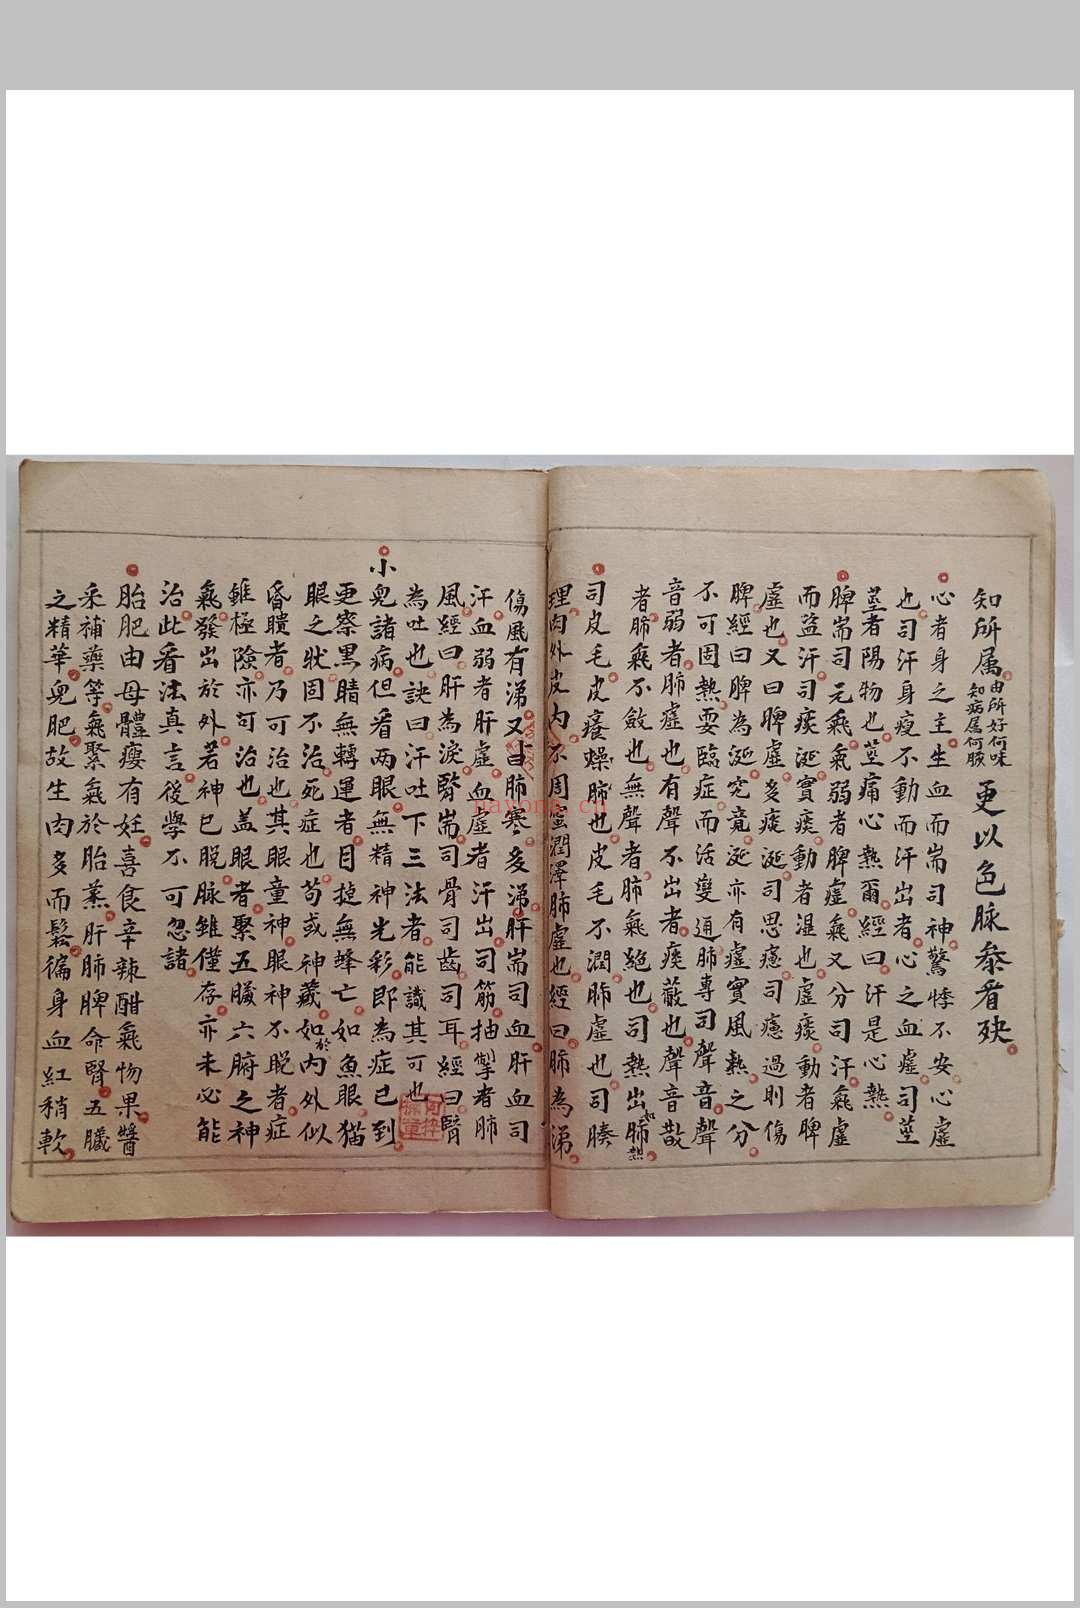 知所属由所好何味知病属何臟更以色脉叅看殀
心者身之主生血而耑司神驚悸不安心虛
也司汗身瘦不動而汗出者心之血虛司莖
莖者陽物也莖痛心熱爾經曰汗是心熱
脾耑司元氣氣弱者脾虛氣又分司汗氣虛
而盗汗司痰涎實痰動者濕也虛痰動者脾
虛也又曰脾虛多痰涎司思慮司慮過則傷
脾經曰脾為涎究竟涎亦有虛實風熱之分
不可固熱要臨症而活變通肺專司聲音聲
音弱者肺虛也有聲不出者痰蔽也聲音散
者肺氣不斂也無聲者肺氣絕也司熱出如肺熱
司皮毛皮癢燥肺也皮毛不潤肺虛也司腠
理肉外皮内不周密潤澤肺虛也經曰肺為涕
傷風有涕又曰肺寒多涕肝耑司血肝血司
汗血弱者肝虛血虛者汗出司筋抽掣者肺
風經曰肝為淚腎耑司骨司齒司耳經曰腎
為吐也訣曰汗吐下三法者能識其可也
小兒諸病但看兩眼無精神光彩即為症已到
更察黑睛無轉運者目㨗無蜂亡如魚眼猫
眼之狀固不治死症也苟或神藏如於内外似
昏瞶者乃可治也其眼童神眼神不脱者症
雖極險亦可治也盖眼者聚五臟六腑之神
氣發出於外若神已脱脉雖僅存亦未必能
治此看法真言後學不可忽諸
胎肥由母體癭有妊喜食辛辣酣氣物果醬
釆補藥等氣聚氣於胎蒸肝肺脾命腎五臟
之精華兒肥故生肉多而鬆徧身血紅稍軟
nayona.cn